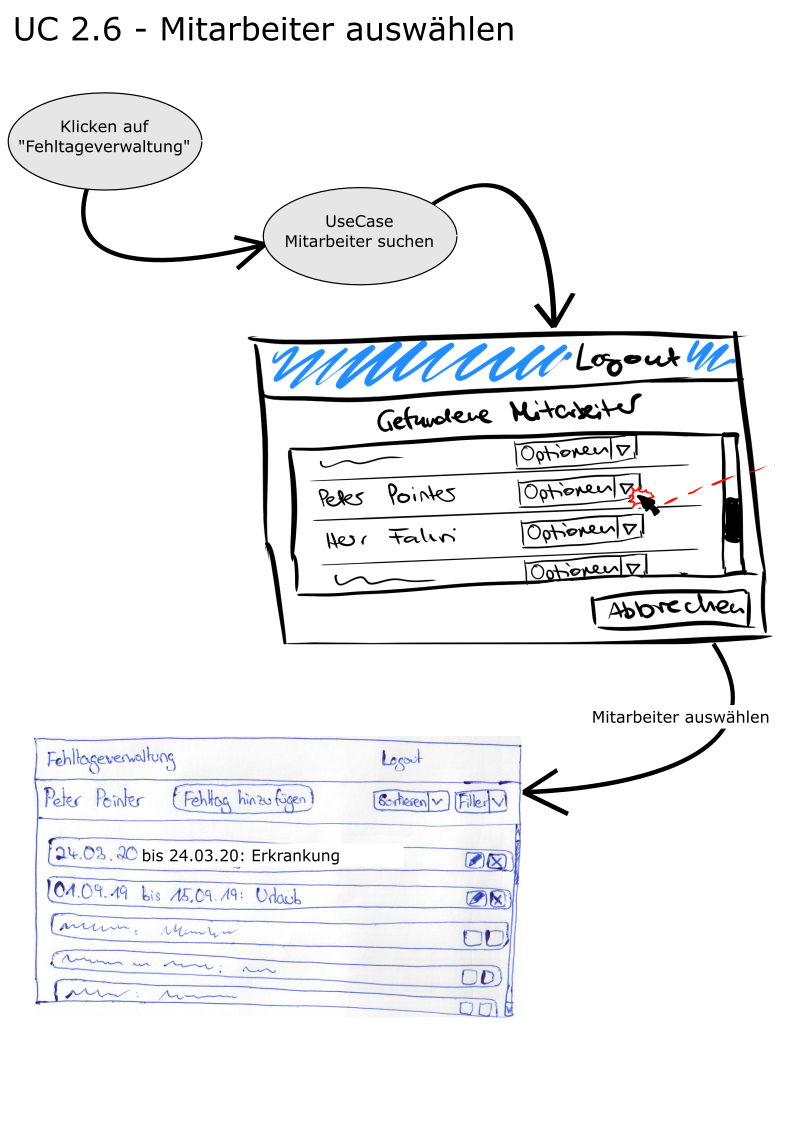 UC 2.6 - Mitarbeiter auswählen
Klicken auf
"Fehltageverwaltung"
UseCase
Mitarbeiter suchen
Logout
Gefundene Mitarbeiter
Optionen
Peter Pointer Optionen
Herr Fahri Optionen
Optionen
Abbrechen
Mitarbeiter auswählen
Fehltageverwaltung Logout
Peter Pointer Fehltag hinzufügen Sortieren Filter
24.03.20 bis 24.03.20: Erkrankung
01.09.19 bis 15.09.19: Urlaub